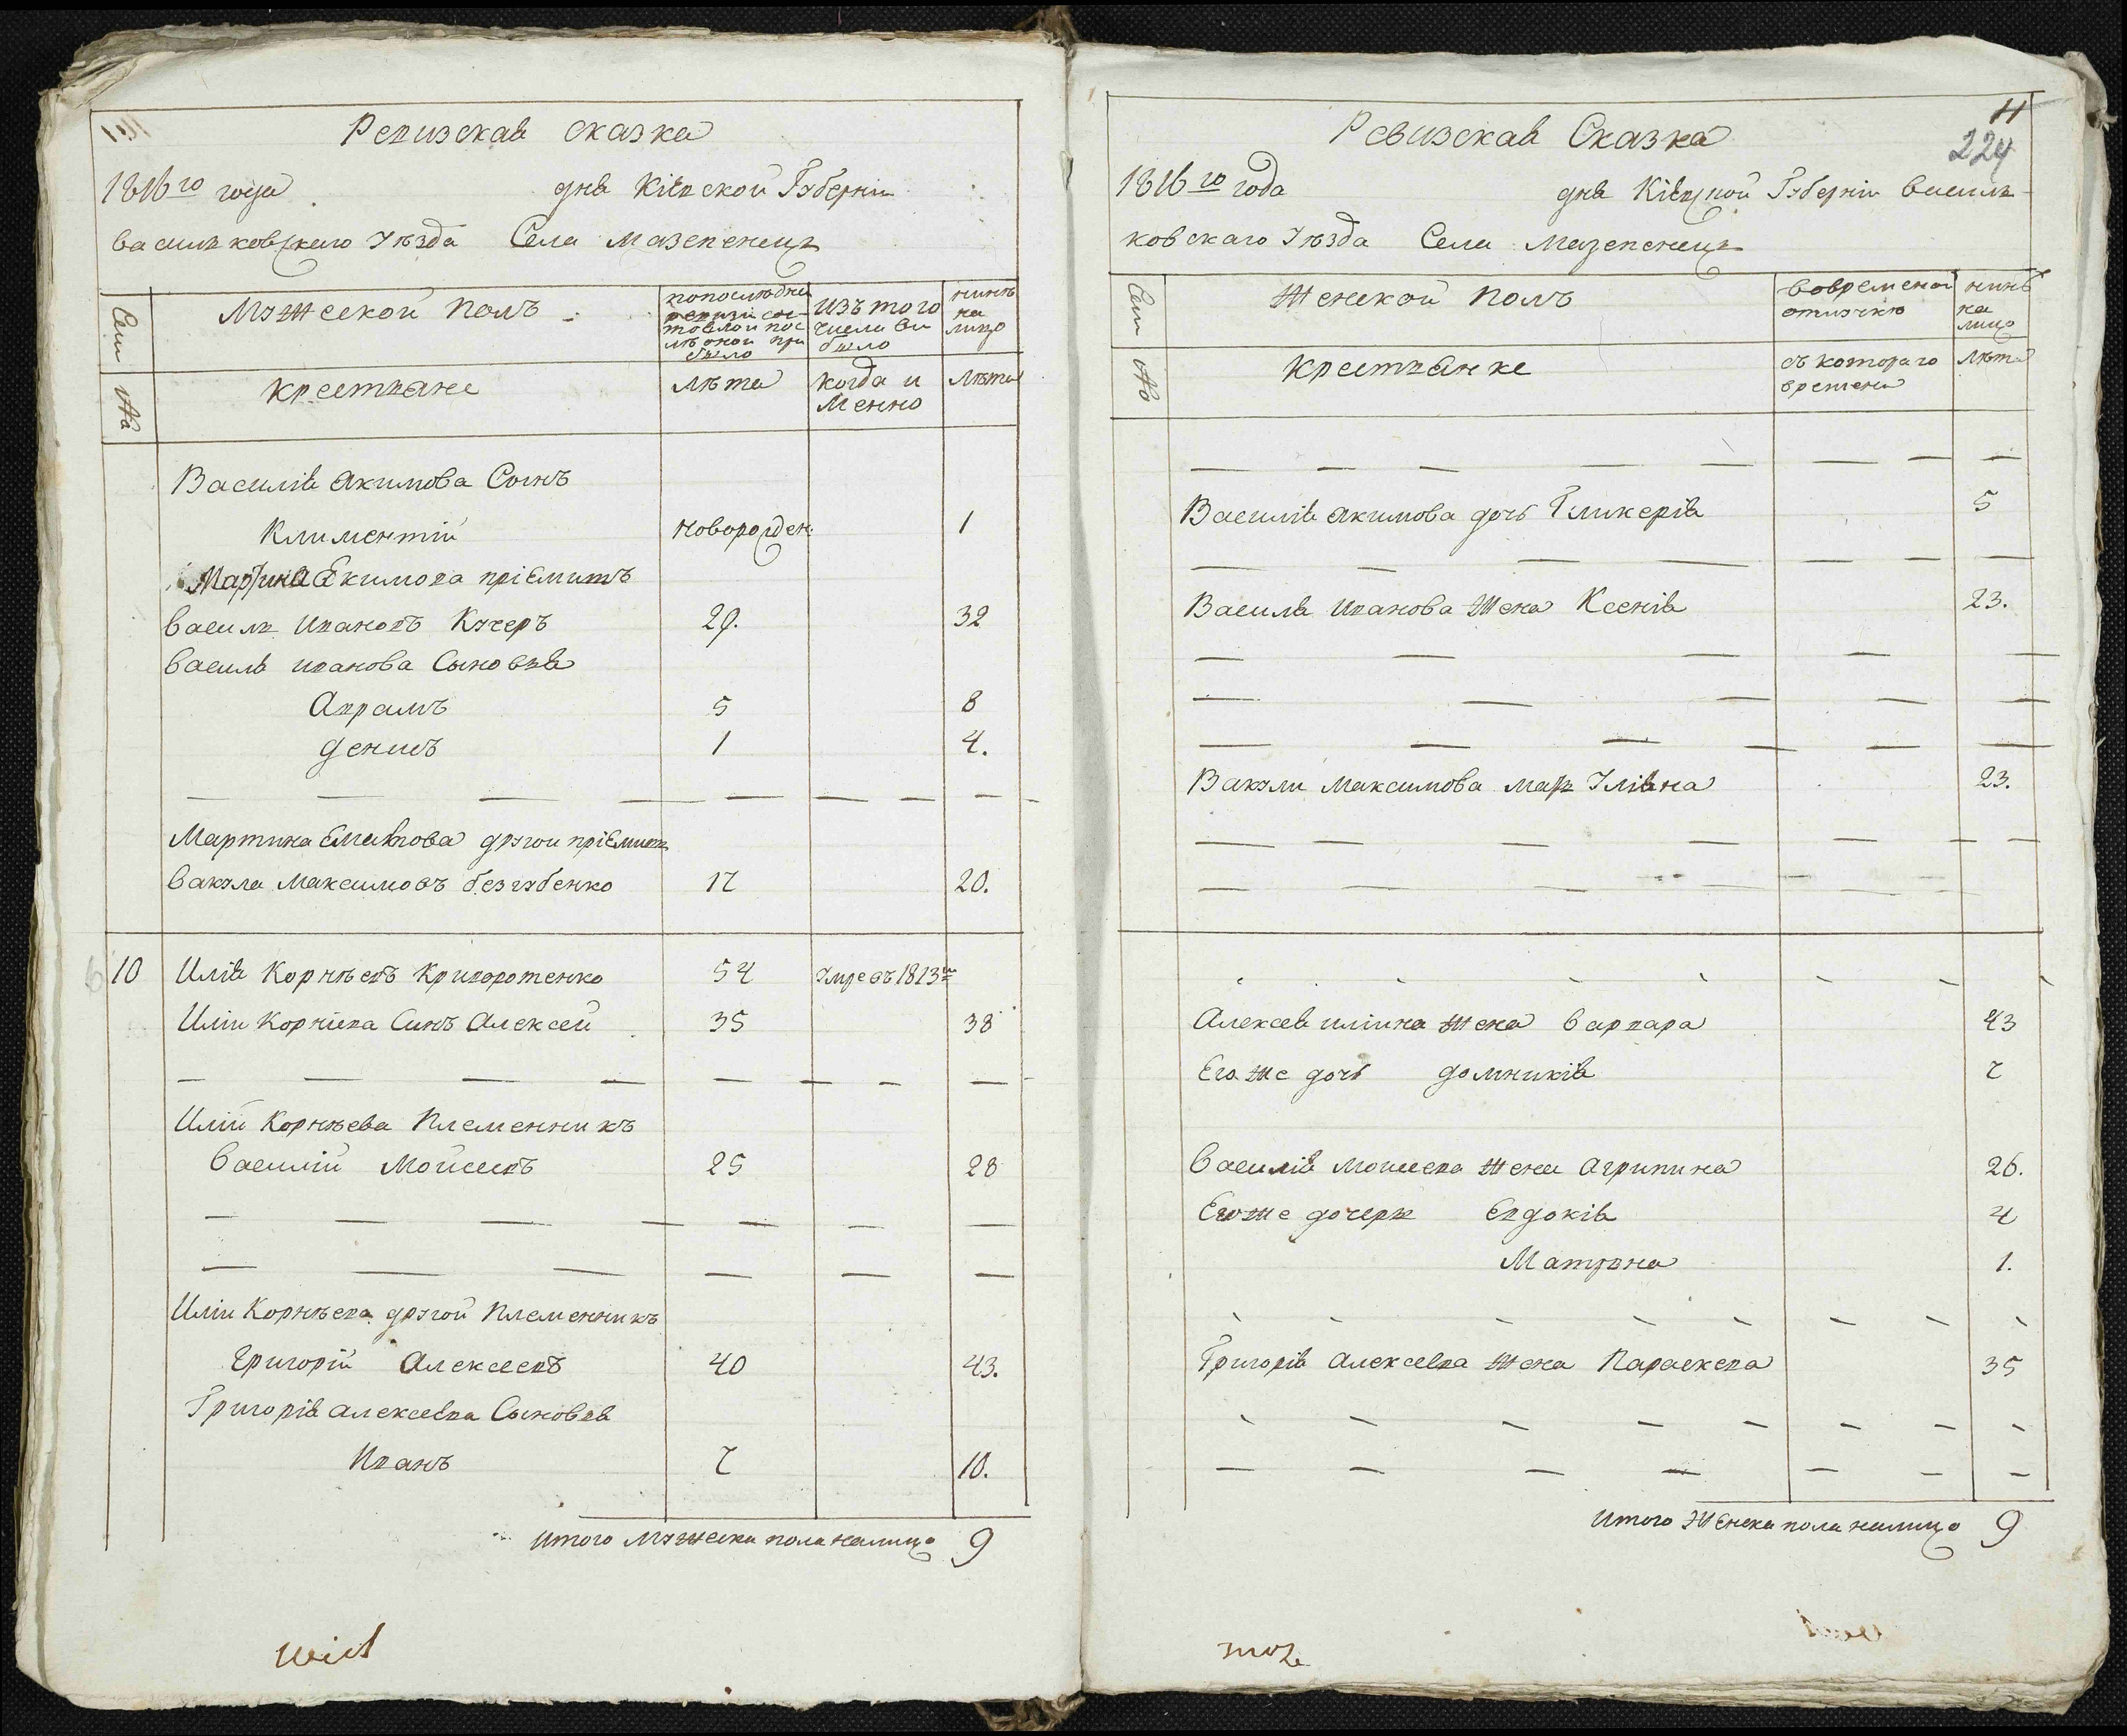 Ревизская сказка
1816го года дня Кіевской Губерніи
васильковскаго Уѣзда Села мазепенець
Семья
№
Мужеской полъ
попослѣдней ревизи состояло и послѣ оной прибыло
изъ того числа выбыло
нинѣ на лицо
крестьяне
лѣта
когда именно
лѣта
Василія Якимова Сынъ
Климентій новорожден 1
Мартина Екимова пріемышъ
василь Ивановъ Кучеръ 29. 32
василя иванова Сыновья
Аврамъ 5 8
денисъ 1 4.
Мартина другои пріемышъ
вакула Максимовъ беззубенко 17 20.
10 Илія Корнѣевъ Криворотенко 54 умре въ 1813м
Иліи Корніева Синъ Алексей 35 38
Иліи Корнѣева Племенникъ
василій Мойсеевъ 25 28
Иліи Корнѣева другой Племенникъ
Григорій Алексеевъ 40 43.
Григорія алексеева Сыновья
Иванъ 7 10.
Итого Мужеска пола налицо 9
11
224
Ревизская Сказка
1816го года дня Кіевской Губерніи василь
ковскаго Уѣзда Села Мазепенець
Семья
№
Женской полъ
вовременой отлучкѣ
нинѣ на лицо
крестьянке
съ котораго времени
лѣта
Василія якимова дочь Гликерія 5
Василя иванова жена Ксенія 23.
Вакули Максимова Уліяна 23.
Алексея иліина жена варвара 43
Его же дочь домникія 7
василія моисеева жена агрипина 26.
Его же дочери Евдокія 4
Матрына 1.
Григорія алексеева жена Параскева 35
Итого Женска пола налицо 9